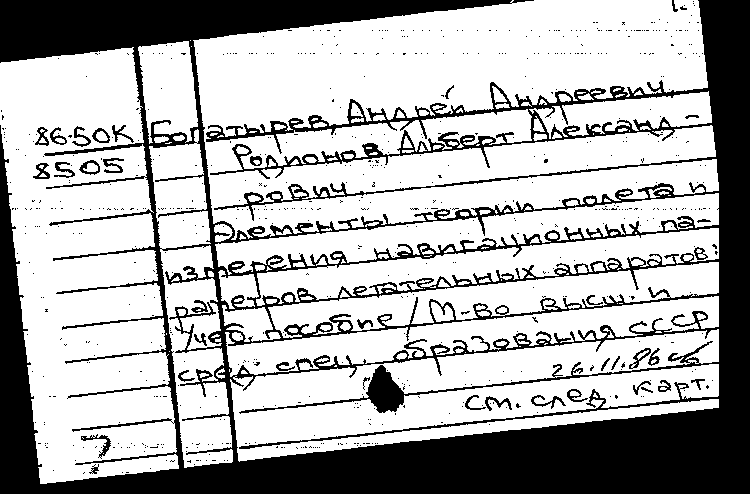 86.50К Богатырев, Андрей Андреевич,
8505 Родионов, Альберт Александ-
рович.
Элементы теории полета и
измерения навигационных па-
раметров летательных аппаратов:
учеб. пособие / М-во высш. и
сред. спец. образования СССР,
26.11.86
см. след. карт.
7